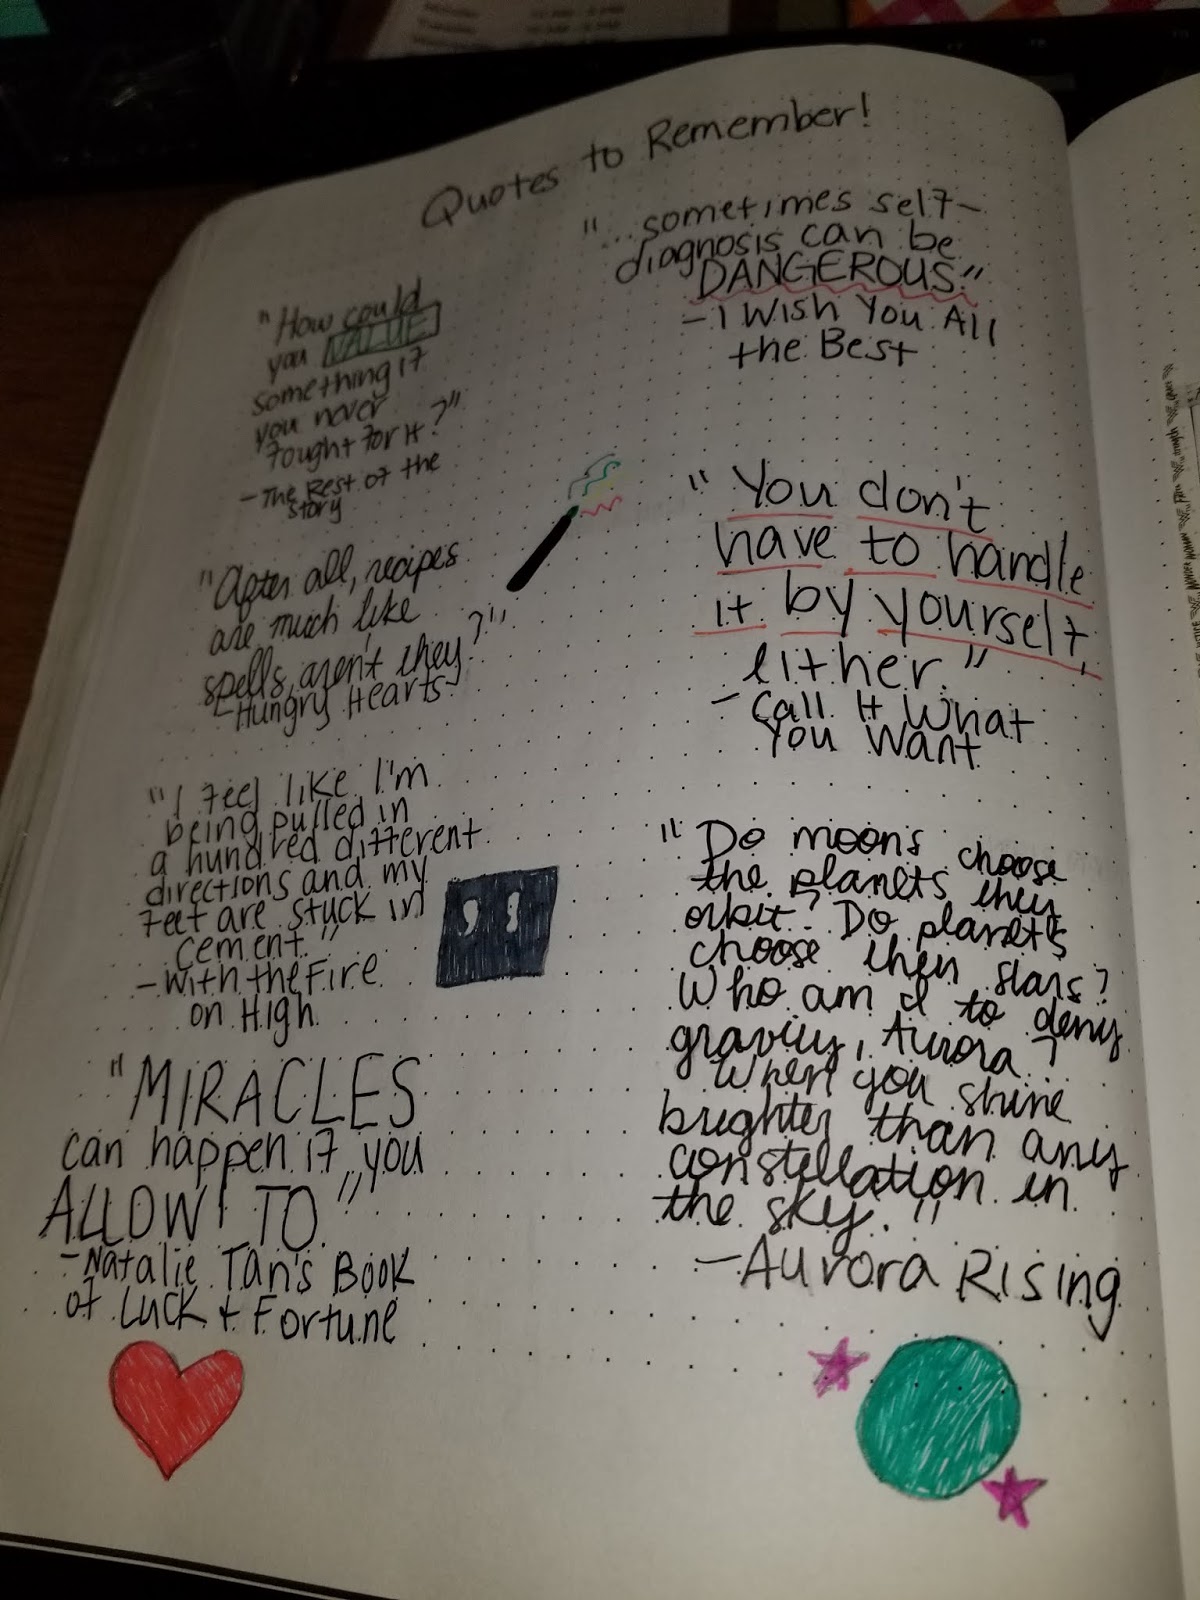 Quotes to Remember!
"How could
you VALUE
something if
you never
fought for it?"
- The Rest of the
Story
"...sometimes self-
diagnosis can be
DANGEROUS."
- I Wish You All
the Best
"After all, recipes
are much like
spells, aren't they?"
- Hungry Hearts
"You don't
have to handle
it by yourself,
either."
- Call It What
You Want
"I feel like I'm
being pulled in
a hundred different
directions and my
feet are stuck in
cement."
- With the Fire
on High
"MIRACLES
can happen if you
ALLOW TO"
- Natalie Tan's Book
of Luck + Fortune
"Do moons choose
the planets they
orbit? Do planets
choose their stars?
Who am I to deny
gravity, Aurora?
When you shine
brighter than any
constellation in
the sky."
- Aurora Rising